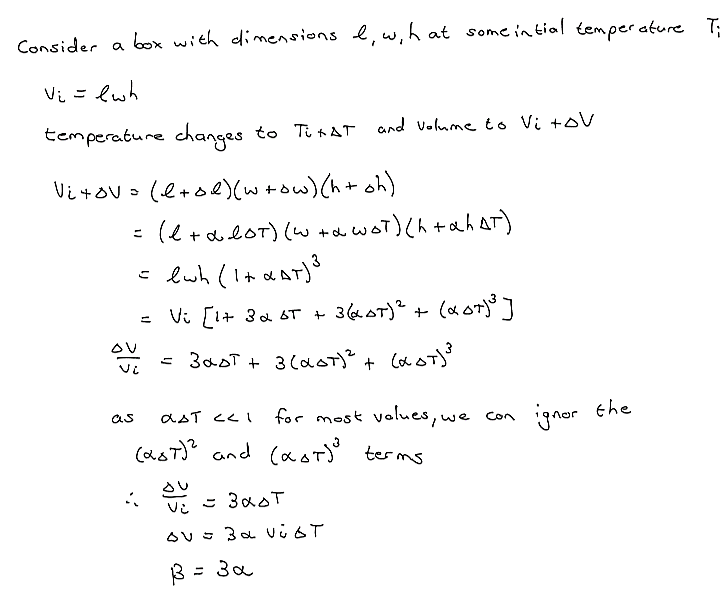 Consider a box with dimensions l, w, h at some intial temperature Ti
Vi = lwh
temperature changes to Ti + ΔT and volume to Vi + ΔV
Vi + ΔV = (l + Δl)(w + Δw)(h + Δh)
= (l + αlΔT)(w + αwΔT)(h + αhΔT)
= lwh (1 + αΔT)³
= Vi [1 + 3αΔT + 3(αΔT)² + (αΔT)³]
ΔV/Vi = 3αΔT + 3(αΔT)² + (αΔT)³
as αΔT << 1 for most values, we can ignor the
(αΔT)² and (αΔT)³ terms
∴ ΔV/Vi = 3αΔT
ΔV = 3αViΔT
β = 3α